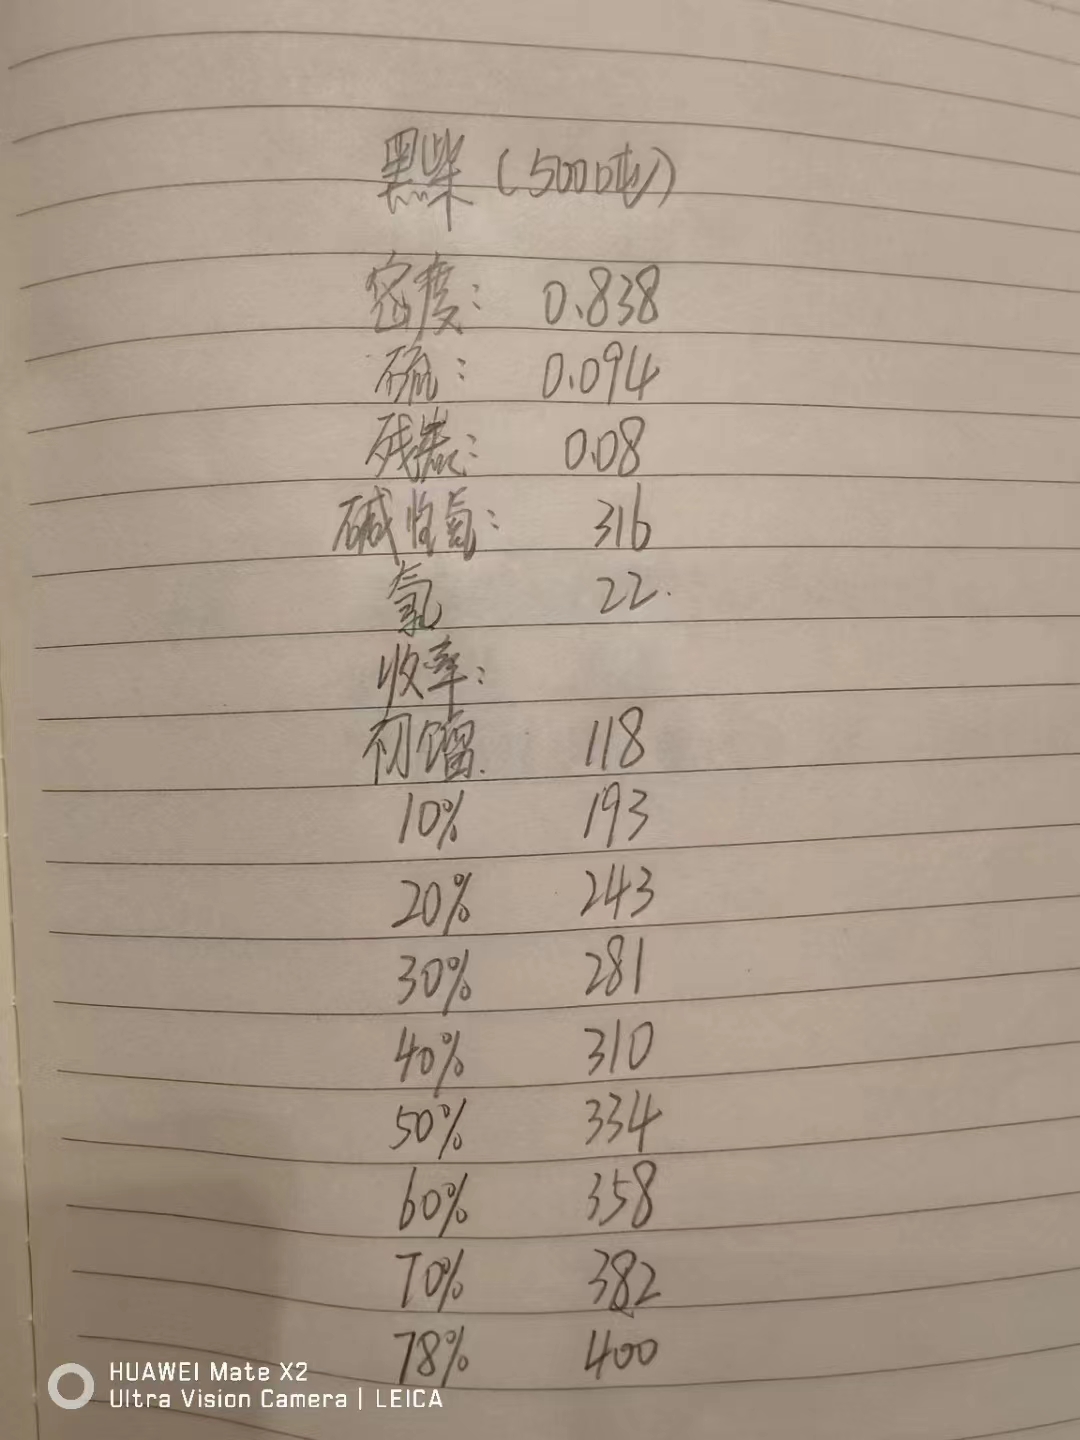 黑柴（5000吨）
密度： 0.838
硫： 0.094
残炭： 0.08
碱性氮： 316
氯 22.
收率：
初馏. 118
10% 193
20% 243
30% 281
40% 310
50% 334
60% 358
70% 382
78% 400
HUAWEI Mate X2
Ultra Vision Camera | LEICA